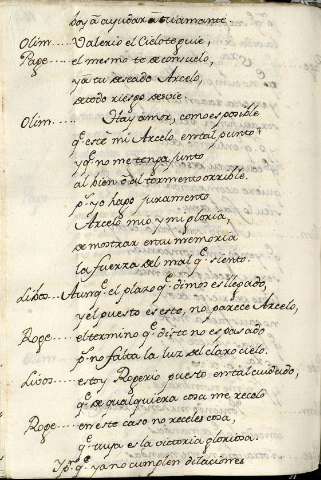 boy a ayudar a tu amante.
Olim..... Valerio el Cielo te guie,
Page..... el mesmo te dé consuelo,
ya tu deseado Arcelo,
de todo riesgo desvie.
Olim..... Hay amor, como es posible
q.e esté mi Arcelo en tal punto
y q.e no me tenga junto
al bien o al tormento orrible.
p.o yo hago juramento
Arcelo mio y mi gloria,
de mostrar en tu memoria
la fuerza del mal q.e siento.
Aunq.e el plazo q.e dimos es llegado,
y el puesto es este, no parece Arcelo,
Roge..... el termino q.e diste no es pasado
p.s no falta la luz del claro cielo.
estoy Rogerio puesto en tal cuidado,
q.e de qualquiera cosa me recelo
Roge..... en este caso no receles cosa,
q.e tuya es la victoria gloriosa.
q.e ya no cumplen dilaciones